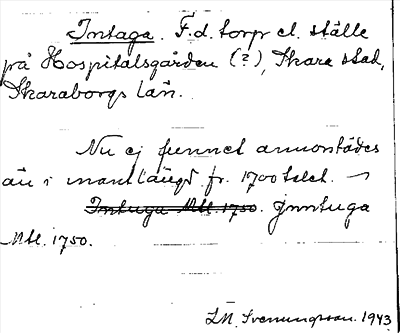 Intaga. F.d. torp el. ställe
på Hospitalsgården (?), Skara stad,
Skaraborgs län.
Nu ej funnet annorstädes
än i mantlängd fr. 1700 talet. —
Intuga Mtl. 1750. Jnntuga
Mtl. 1750.
LM. Svenungsson. 1943